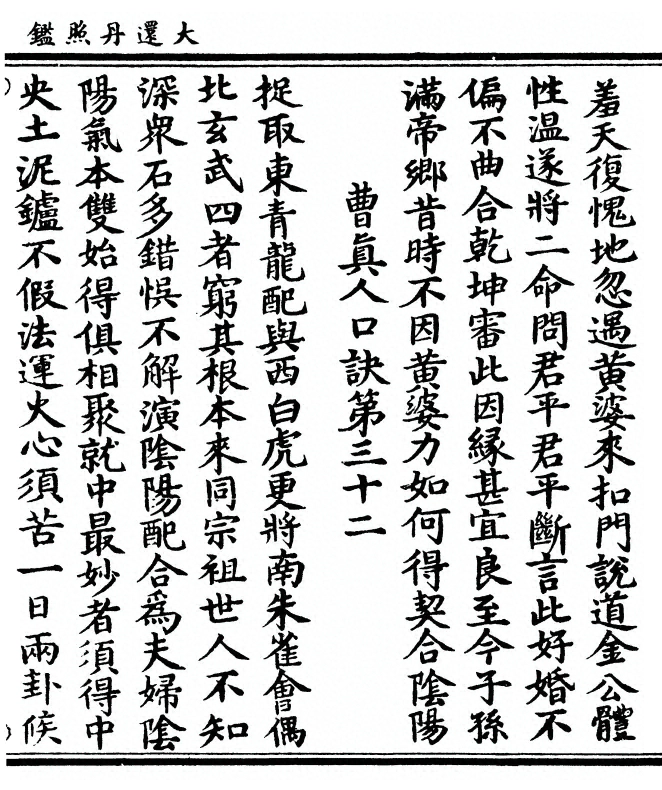 大還丹照鑑
羞天復愧地忽遇黃婆來扣門說道金公體
性溫遂將二命問君平君平斷言此好婚不
偏不曲合乾坤審此因緣甚宜良至今子孫
滿帝鄉昔時不因黃婆力如何得契合陰陽
曹眞人口訣第三十二
捉取東青龍配與西白虎更將南朱雀會偶
北玄武四者窮其根本來同宗祖世人不知
深衆石多錯悞不解演陰陽配合爲夫婦陰
陽氣本雙始得俱相聚就中最妙者須得中
央土泥鑪不假法運火心須苦一日兩卦候